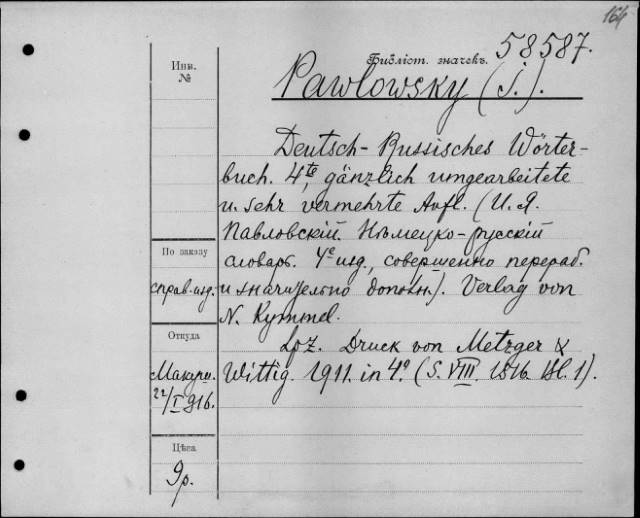 164
Библіот. значекъ. 58587.
Инв.
№
Pawlowsky (J.).
Deutsch-Russisches Wörter-
buch. 4te, gänzlich umgearbeitete
u. sehr vermehrte Aufl. (И. Я.
Павловскій. Нѣмецко-русскій
словарь. 4е изд., совершенно перераб.
и значительно дополн.). Verlag von
N. Kymmel.
Lpz. Druck von Metzger &
Wittig. 1911. in 4º (S. VIII. 1516. Bl. 1).
По заказу
справ. изд.
Откуда
22/I 916.
Цѣна
9р.